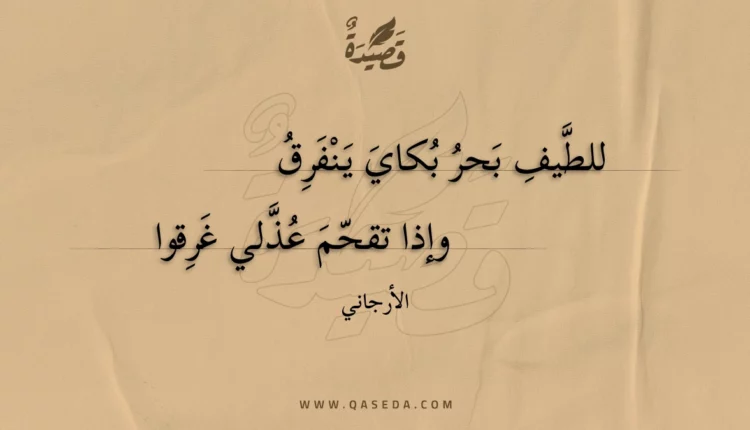 قَصِيْدَةٌ
للطَّيفِ بَحرُ بُكايَ يَنْفَرِقُ
وإذا تقحّمَ عُذَّلي غَرِقوا
الأرجاني
WWW.QASEDA.COM